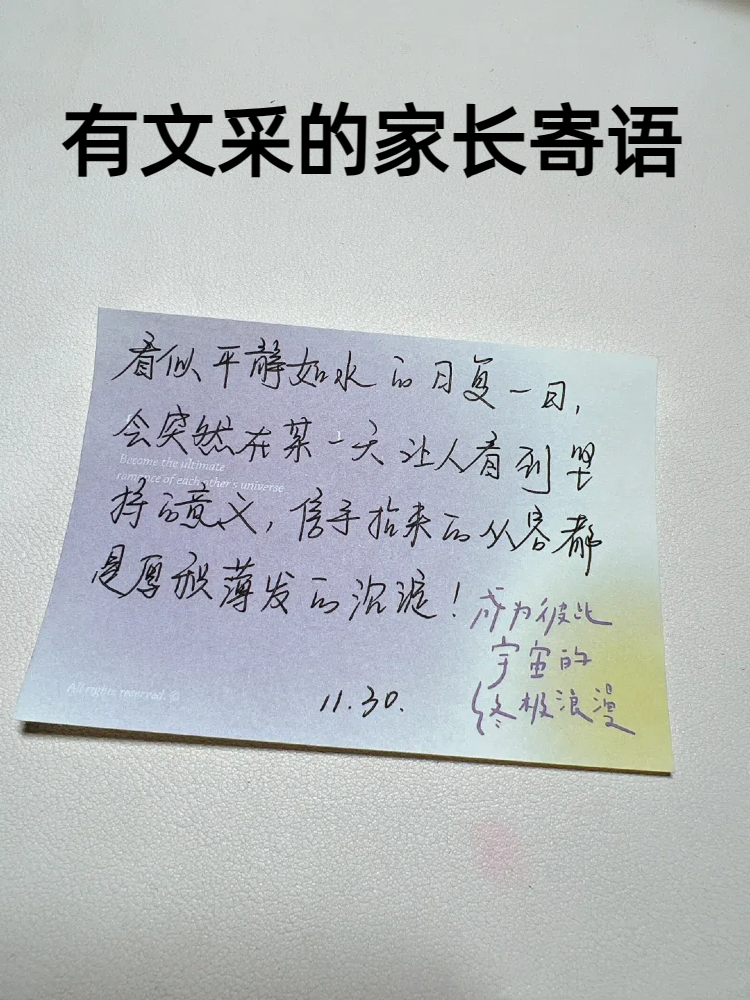 有文采的家长寄语
看似平静如水的日复一日，
会突然在某一天让人看到坚
Become the ultimate
romance of each other's universe
持的意义，信手拈来的从容都
是厚积薄发的沉淀！
成为彼此
宇宙的
终极浪漫
All rights reserved. ©
11.30.